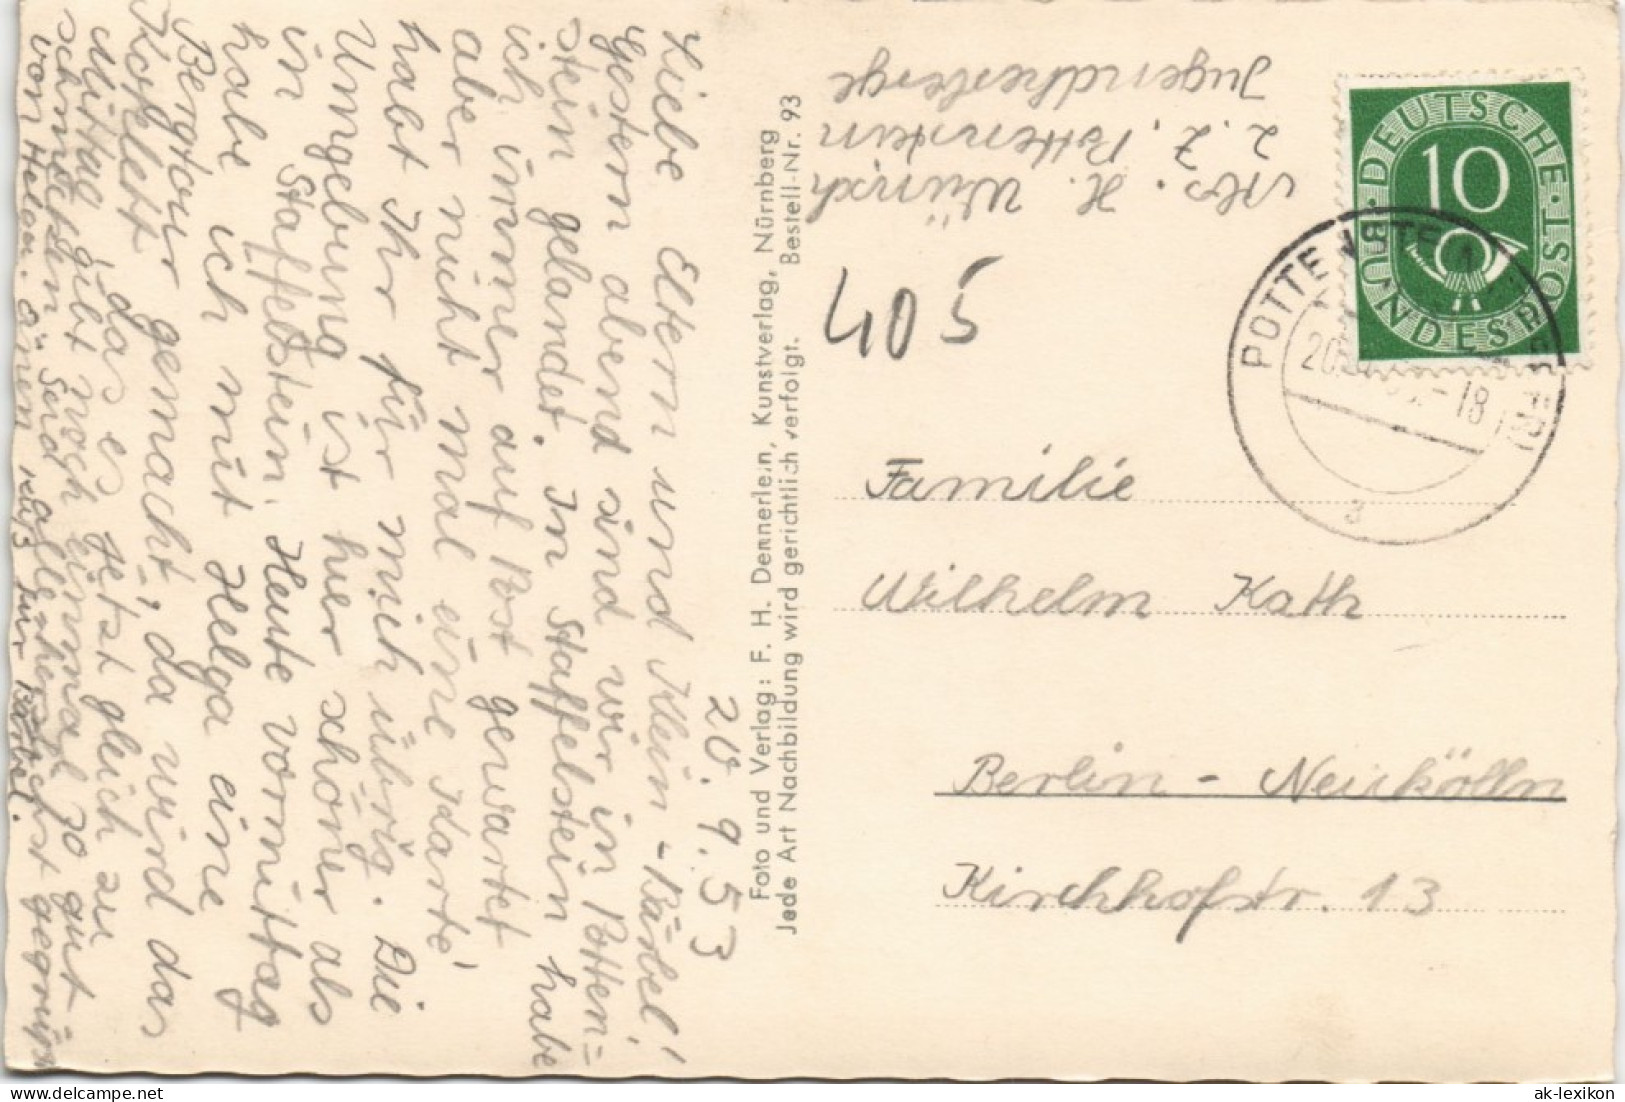 20. 9. 53
Liebe Eltern und Klein-Bärbel!
Gestern abend sind wir in Potten=
stein gelandet. In Staffelstein habe
ich immer auf Post gewartet
aber nicht mal eine Karte
habt Ihr für mich übrig. Die
Umgebung ist hier schöner als
in Staffelstein. Heute vormittag
habe ich mit Helga eine
Bergtour gemacht, da wird das
Kotelett, das es jetzt gleich zu
Mittag gibt noch einmal so gut
schmecken. Seid alle herzlichst gegrüßt
von Helga. einen Kuß für Bärbel.
Foto und Verlag: F. H. Dennerlein, Kunstverlag, Nürnberg
Jede Art Nachbildung wird gerichtlich verfolgt. Bestell-Nr. 93
Abs. H. Wünsch
z. Z. Pottenstein
Jugendherberge
405
DEUTSCHE BUNDESPOST
10
POTTENSTEIN
20. -18
a
Familie
Wilhelm Kath
Berlin - Neukölln
Kirchhofstr. 13
ak-lexikon